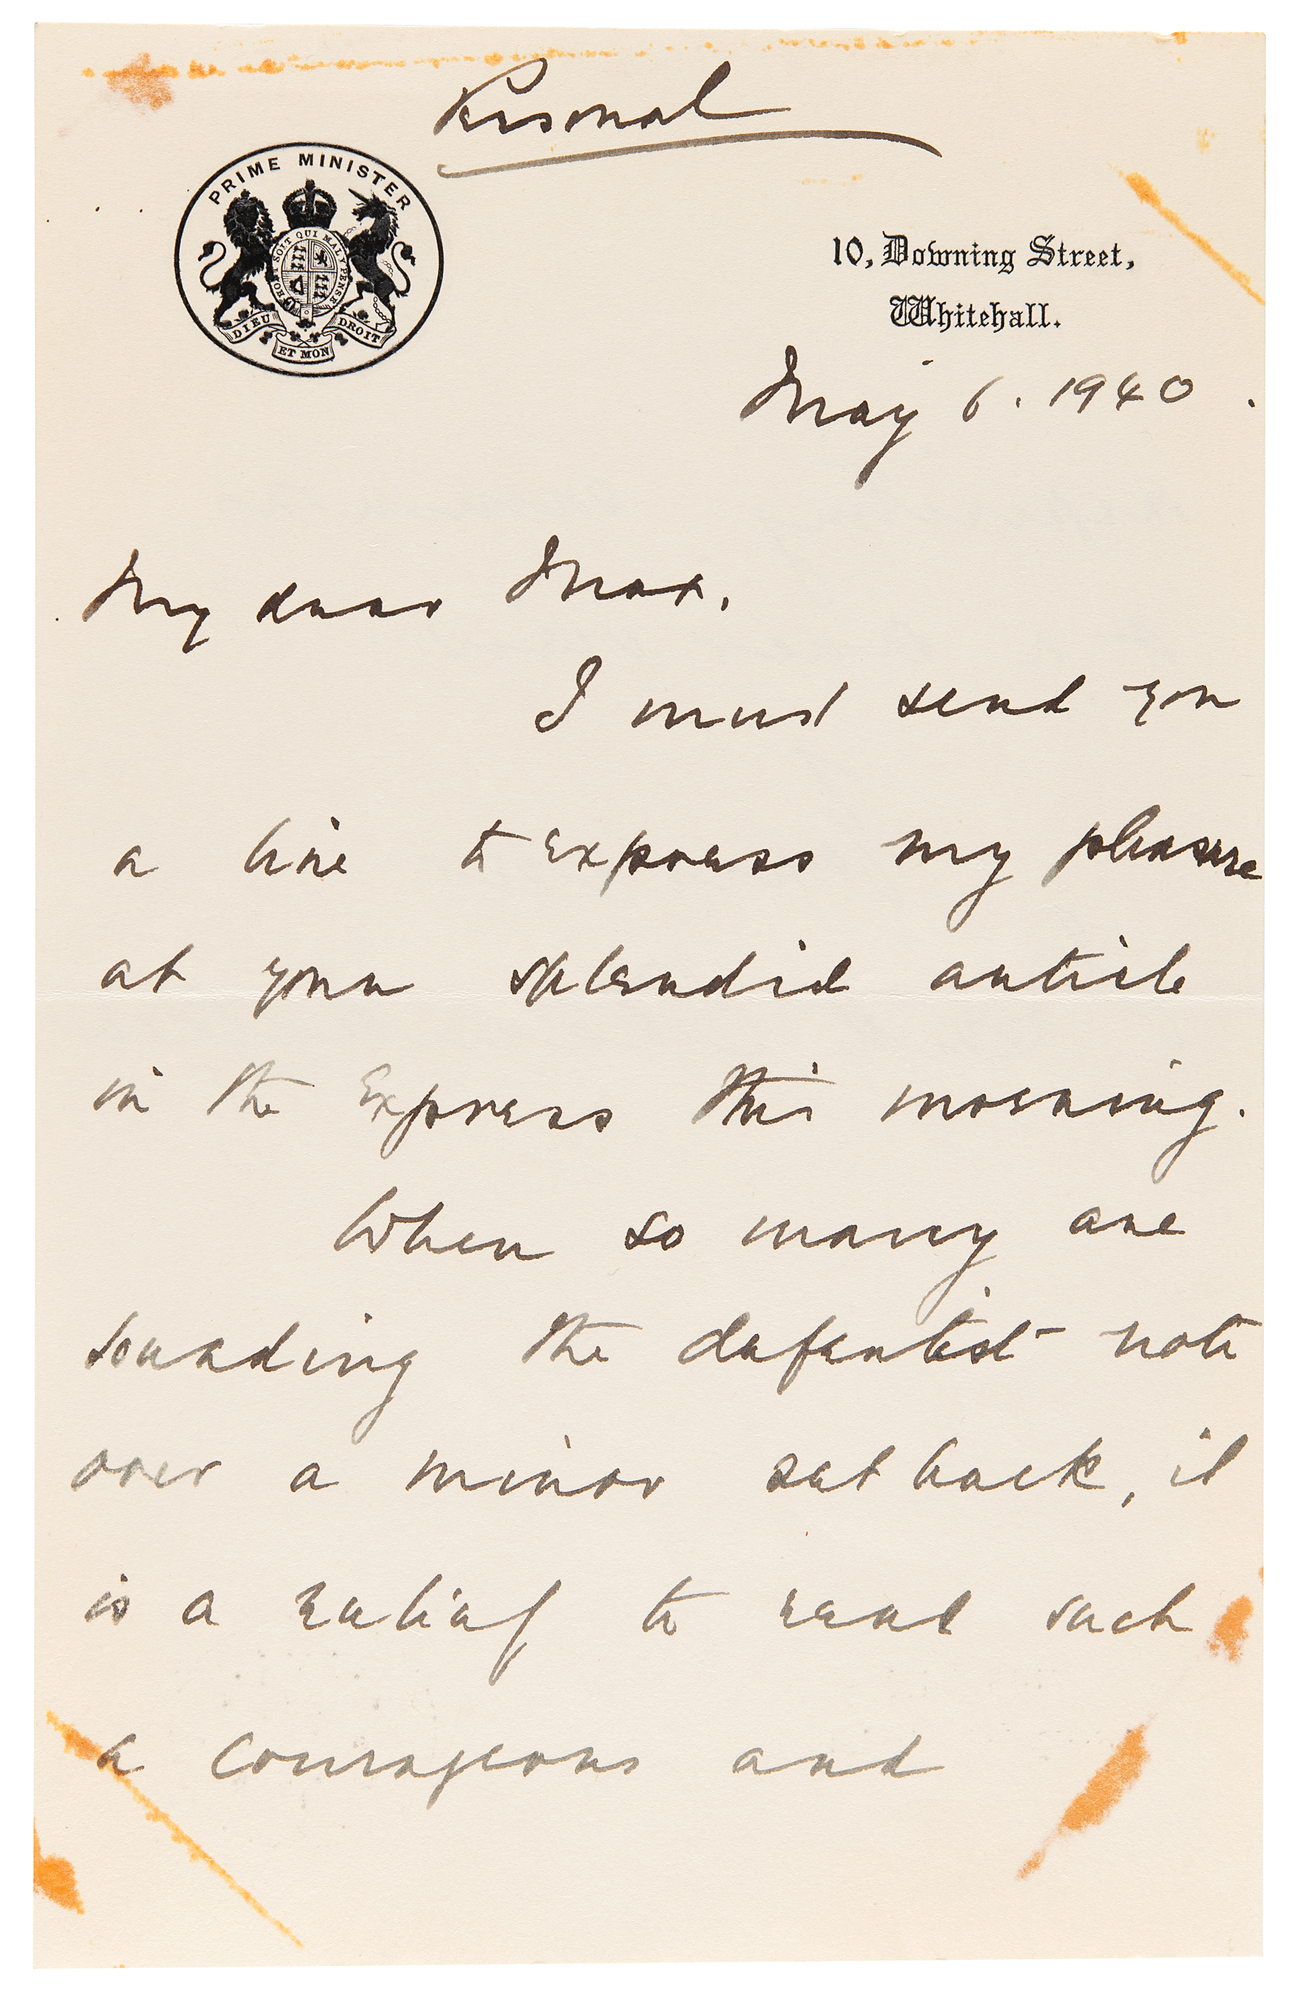 Personal
PRIME MINISTER
HONI SOIT QUI MAL Y PENSE
DIEU ET MON DROIT
10, Downing Street,
Whitehall.
May 6. 1940.
My dear Max,
I must send you
a line to express my pleasure
at your splendid article
in the Express this morning.
When so many are
sounding the defeatist note
over a minor set back, it
is a relief to read such
a courageous and